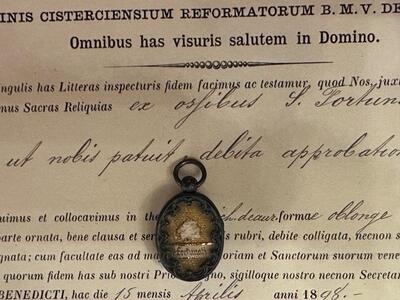 INIS CISTERCIENSIUM REFORMATORUM B. M. V. DE
Omnibus has visuris salutem in Domino.
ingulis has Litteras inspecturis fidem facimus ac testamur, quod Nos, jux
mus Sacras Reliquias ex ossibus S. Fortun
ut nobis patuit debita approbation
uimus et collocavimus in the ch. deaur. formae oblonge
parte ornata, bene clausa et se rubri, debite colligata, necnon s
gnata; cum facultate eas ad ma oriam et Sanctorum suorum vene
quorum fidem has sub nostri Pr sigilloque nostro necnon Secre
BENEDICTI, hac die 15 mensis Aprilis anni 1898.-